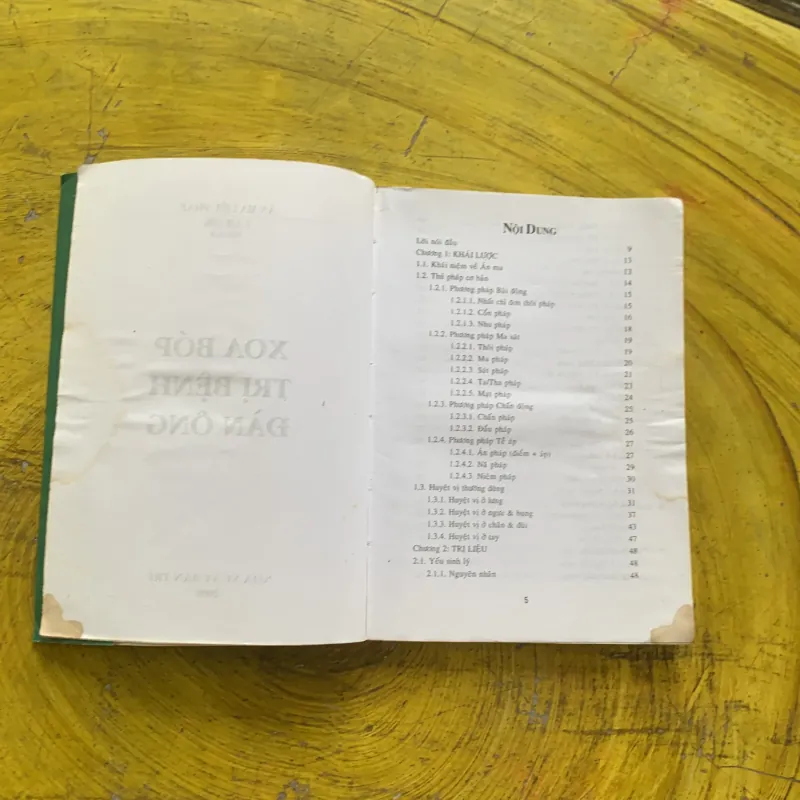 XOA BÓP
TRỊ BỆNH
ĐÀN ÔNG
NỘI DUNG
Lời nói đầu 9
Chương 1: KHÁI LƯỢC 13
1.1. Khái niệm về Án ma 13
1.2. Thủ pháp cơ bản 14
1.2.1. Phương pháp Bãi động 15
1.2.1.1. Nhất chỉ đơn thôi pháp 15
1.2.1.2. Cổn pháp 16
1.2.1.3. Nhu pháp 18
1.2.2. Phương pháp Ma sát 19
1.2.2.1. Thôi pháp 19
1.2.2.2. Ma pháp 20
1.2.2.3. Sát pháp 21
1.2.2.4. Ta/Tha pháp 23
1.2.2.5. Mạt pháp 24
1.2.3. Phương pháp Chấn động 25
1.2.3.1. Chấn pháp 25
1.2.3.2. Đẩu pháp 26
1.2.4. Phương pháp Tễ áp 27
1.2.4.1. Án pháp (điểm + áp) 27
1.2.4.2. Nã pháp 29
1.2.4.3. Niệm pháp 30
1.3. Huyệt vị thường dùng 31
1.3.1. Huyệt vị ở lưng 31
1.3.2. Huyệt vị ở ngực & bụng 37
1.3.3. Huyệt vị ở chân & đùi 43
1.3.4. Huyệt vị ở tay 47
Chương 2: TRỊ LIỆU 48
2.1. Yếu sinh lý 48
2.1.1. Nguyên nhân 48
5